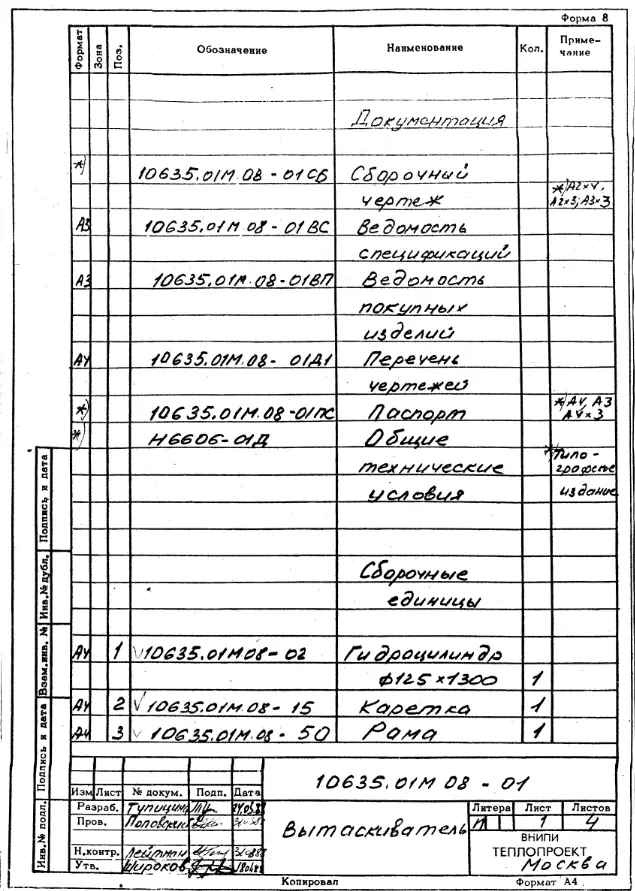 Форма 8
Формат Зона Поз. Обозначение Наименование Кол. Приме-
чание
Документация
*) 10635.01М.08-01СБ Сборочный
чертеж *) А2х4,
А2х3; А3х3
А3 10635.01М 08-01ВС Ведомость
спецификаций
А3 10635.01М.08-01ВП Ведомость
покупных
изделий
А4 10635.01М.08-01Д1 Перечень
чертежей
*) 10635.01М.08-01ПС Паспорт *) А4, А3
А4х3
*) Н6606-01Д Общие
технические *Типо-
условия издание
Сборочные
единицы
А4 1 √10635.01М08-02 Гидроцилиндр
ф125х1300 1
А4 2 √10635.01М.08-15 Каретка 1
А4 3 √10635.01М.08-50 Рама 1
Подпись и дата
Инв.№ дубл.
Взам.инв. №
Подпись и дата
Инв.№ подл.
10635.01М 08-01
Изм Лист № докум. Подп. Дата
Разраб. Тупицына
Пров.
Н.контр. Лейтман
Утв. Широков
Вытаскиватель
Литера Лист Листов
И 1 4
ВНИПИ
ТЕПЛОПРОЕКТ
Москва
Копировал Формат А4